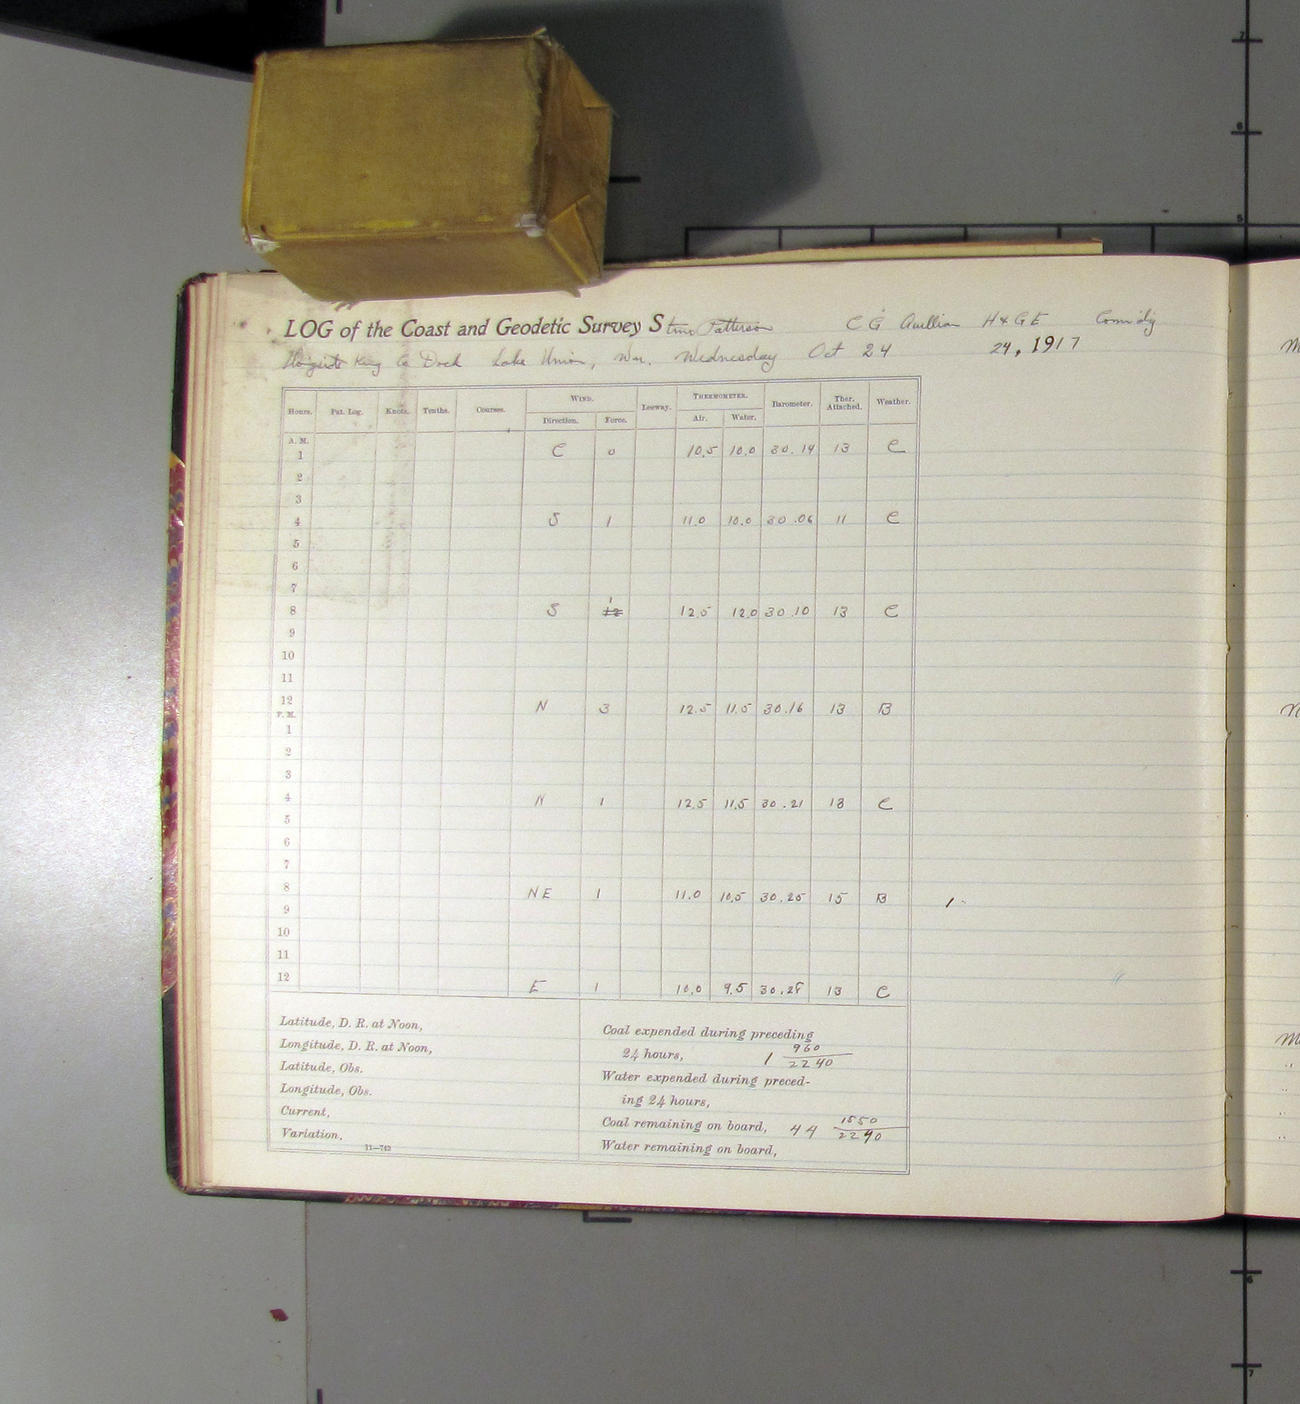 LOG of the Coast and Geodetic Survey Stmr Patterson C G Quillian H & G E Comdg
Alongside King Co Dock Lake Union, Wn. Wednesday Oct 24 24, 1917
Hours. Pat. Log. Knots. Tenths. Courses. WIND. Leeway. THERMOMETER. Barometer. Ther. Attached. Weather.
Direction. Force. Air. Water.
A. M.
1 C 0 10.5 10.0 30.14 13 C
2
3
4 S 1 11.0 10.0 30.06 11 C
5
6
7
8 S 1 12.5 12.0 30.10 13 C
9
10
11
12 N 3 12.5 11.5 30.16 13 B
P. M.
1
2
3
4 N 1 12.5 11.5 30.21 13 C
5
6
7
8 NE 1 11.0 10.5 30.25 15 B
9
10
11
12 E 1 10.0 9.5 30.28 13 C
Latitude, D. R. at Noon,
Longitude, D. R. at Noon,
Latitude, Obs.
Longitude, Obs.
Current,
Variation,
11—742
Coal expended during preceding
24 hours, 1 960/2240
Water expended during preced-
ing 24 hours,
Coal remaining on board, 44 1550/2240
Water remaining on board,